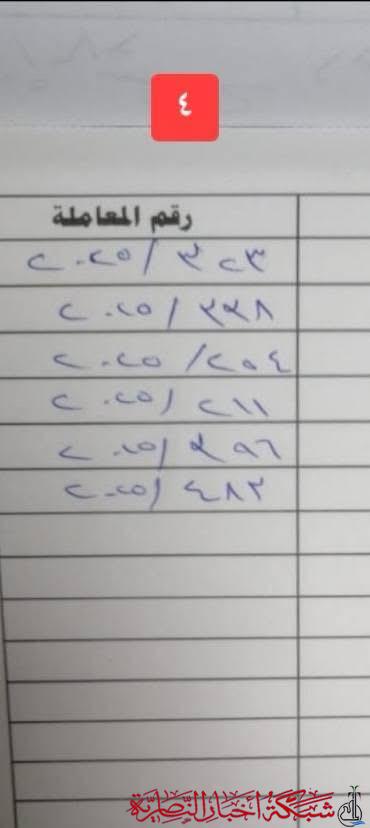 ٤
رقم المعاملة
٣٢٣ / ٢٠٢٥
٢٢٨ / ٢٠٢٥
٢٥٤ / ٢٠٢٥
٢١١ / ٢٠٢٥
٢٥٦ / ٢٠٢٥
٤٨٢ / ٢٠٢٥
شبكة أخبار الناصرية